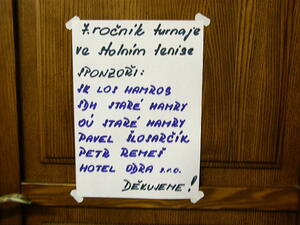 7. ročník turnaje
ve stolním tenise
SPONZOŘI:
SK LOS HAMROS
SDH STARÉ HAMRY
OÚ STARÉ HAMRY
PAVEL ŠLOSARČÍK
PETR REMEŠ
HOTEL ODRA s.r.o.
DĚKUJEME!